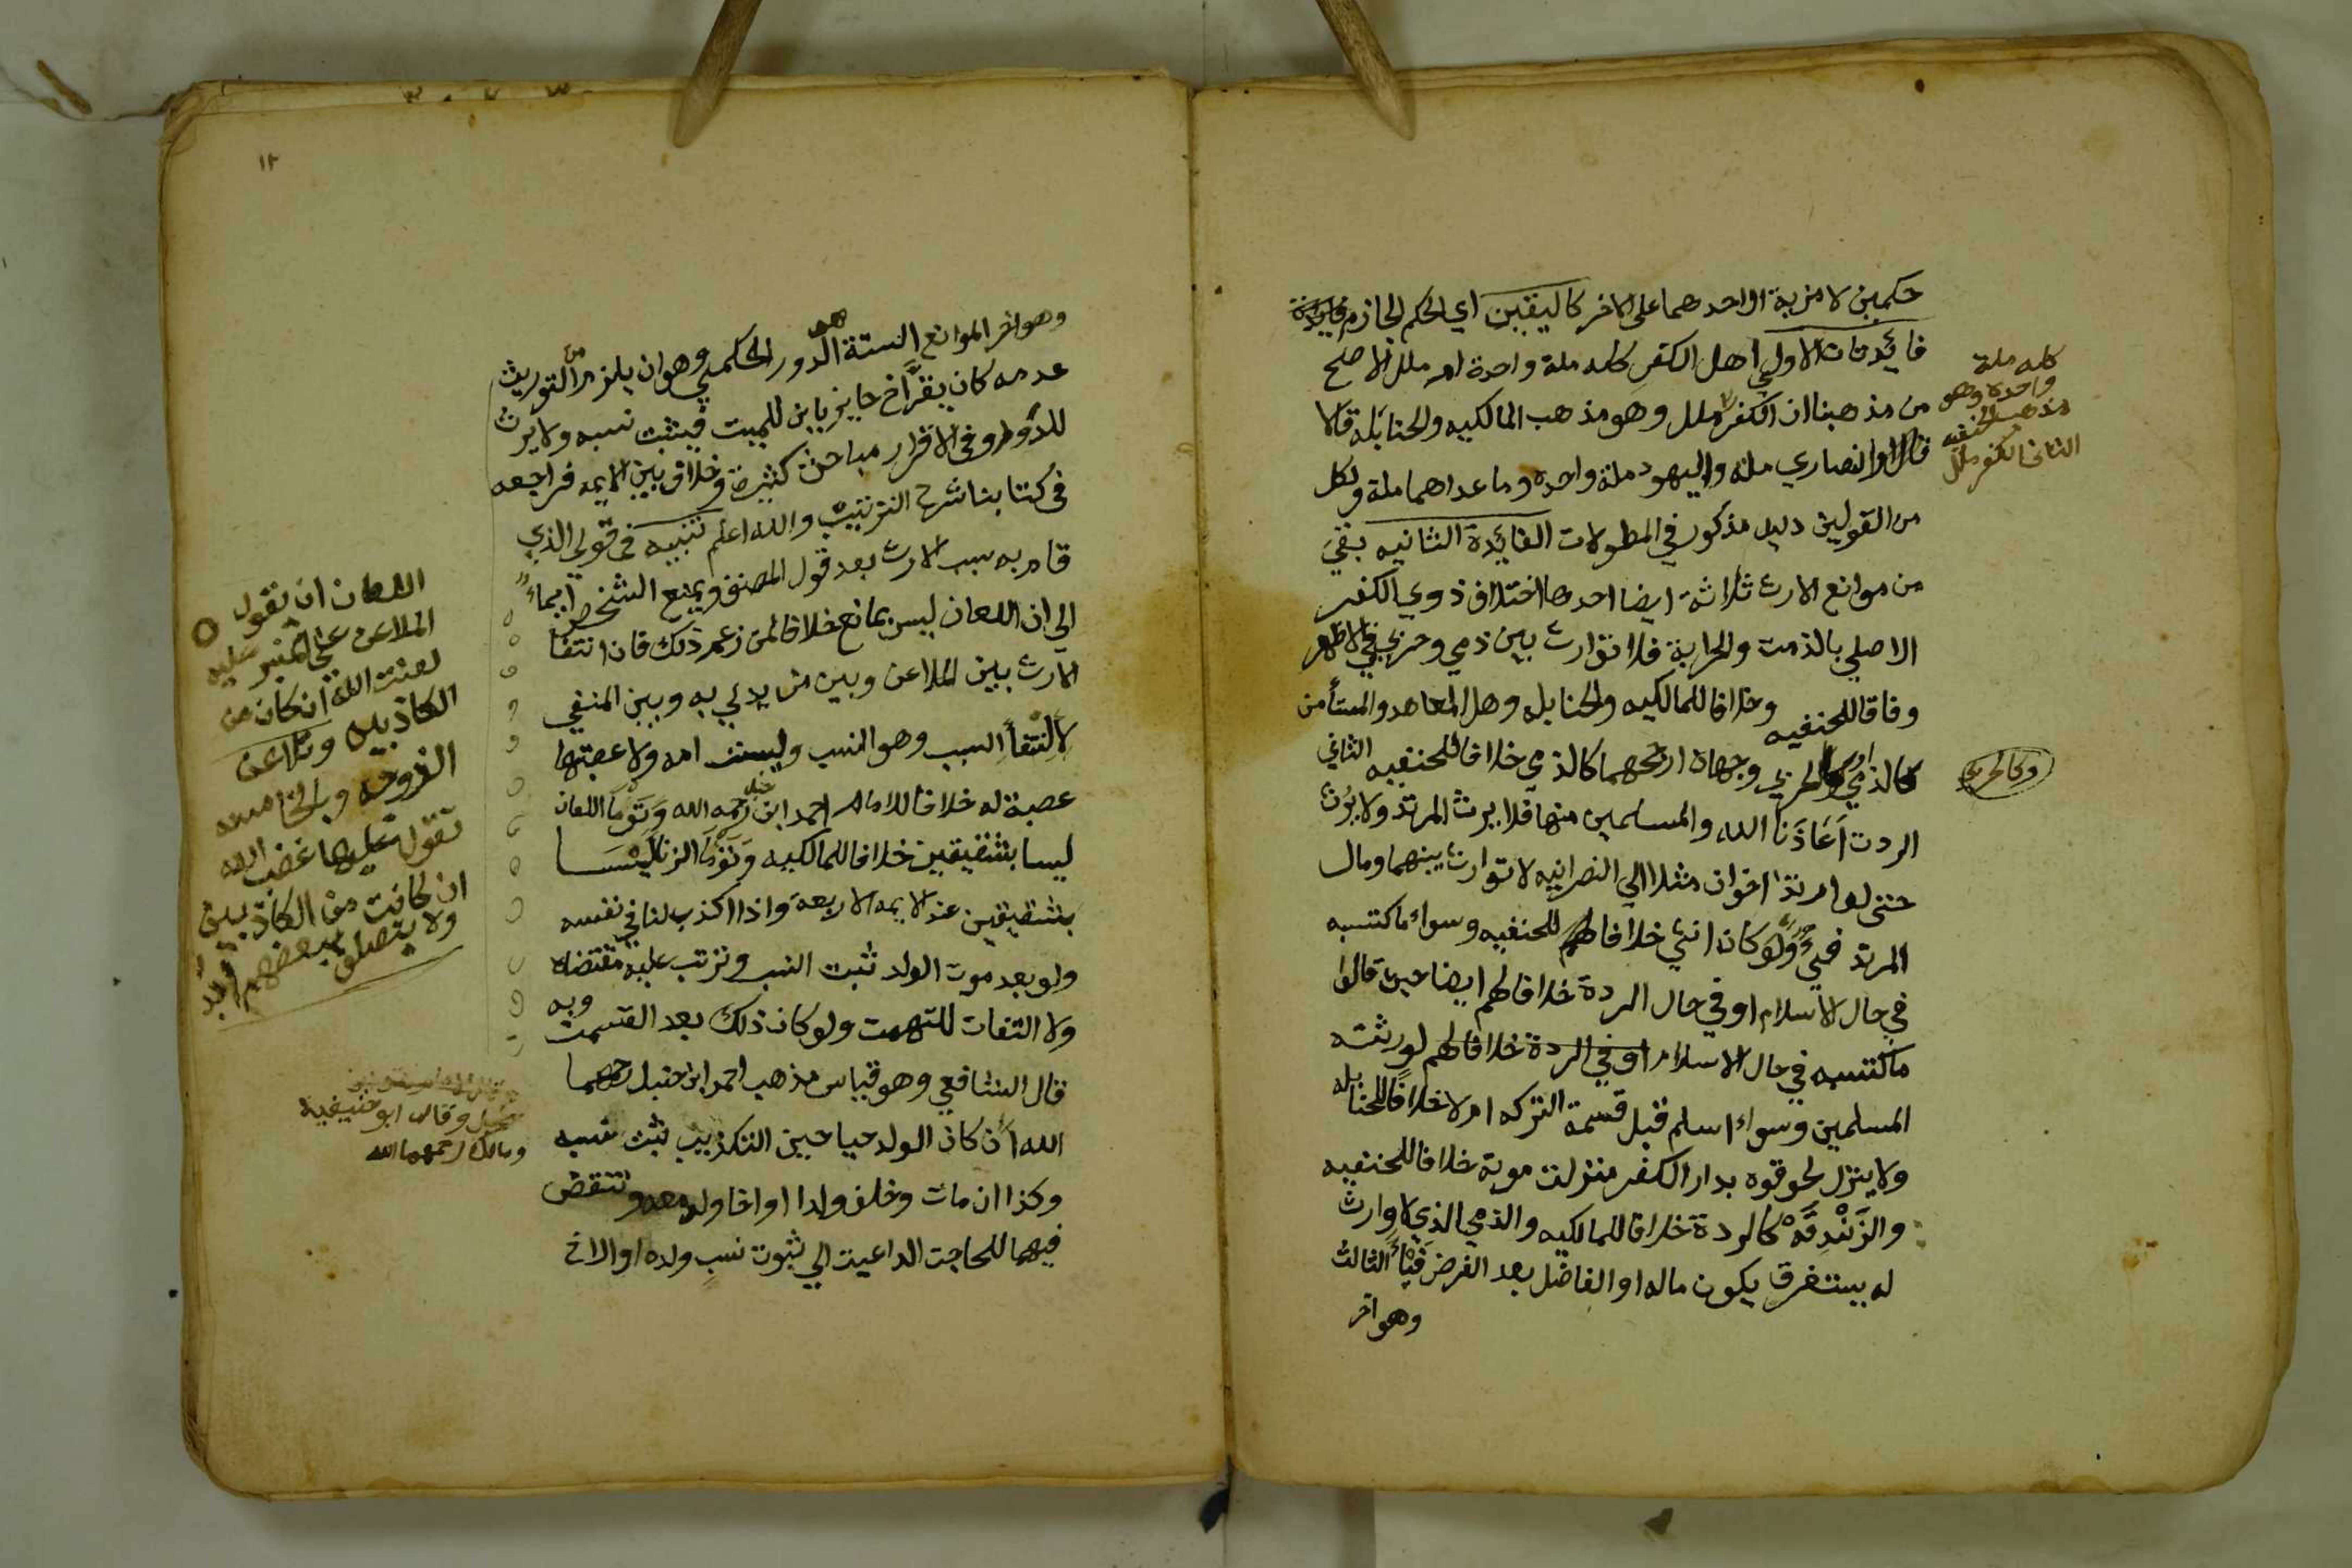 حكمين لا مزية لاحدهما على الاخر كاليقين اي الحكم الجازم
فائدتان الاولي اهل الكفر كله ملة واحدة ام ملل الاصح
من مذهبنا ان الكفر ملل وهو مذهب المالكيه والحنابله قالا
فالنصاري مله واليهود ملة واحده وما عداهما ملة ولكل
من القولين دليل مذكور في المطولات الفائدة الثانيه بقي
من موانع الارث ثلاثة ايضا احدها اختلاف ذوي الكفر
الاصلي بالذمت والحرابة فلا توارث بين ذمي وحربي في الاظهر
وفاقا للحنفيه وخلافا للمالكيه والحنابله وهل المعاهد والمستأمن
كالذمي او كالحربي وجهان ارجحهما كالذمي خلافا للحنفيه الثاني
الردت اعاذنا الله والمسلمين منها فلا يرث المرتد ولا يورث
حتى لو ارتد اخوان مثلا الي النصرانيه لا توارث بينهما ومال
المرتد فيئ ولو كان انثي خلافا للحنفيه وسواء ما كتسبه
في حال الاسلام او في حال الردة خلافا لهم ايضا حين قالوا
ماكتسبه في حال الاسلام او في الردة خلافا لهم لورثته
المسلمين وسواء اسلم قبل قسمة التركه ام لا خلافا للحنابله
ولا ينزل لحوقوه بدار الكفر منزلت موته خلافا للحنفيه
والزندقه كالردة خلافا للمالكيه والذمي الذي لا وارث
له يستغرق يكون ماله او الفاضل بعد الفرض فيأ الثالث
وهو اخر
كله ملة
واحده وهو
مذهب الحنفيه
الثاني الكفر ملل
وكالحربي
١٢
وهو اخر الموانع الستة الدور الحكمي وهو ان يلزم من التوريث
عدمه كان يقر اخ حايز بابن للميت فيثبت نسبه ولا يرث
للدور وفي الاقرار مباحث كثيرة وخلاف بين الايمه فراجعه
في كتابنا شرح الترتيب والله اعلم تنبيه في قولي الذي
قام به سبب الارث بعد قول المصنف ويمنع الشخص ايماء
الي ان اللعان ليس بمانع خلافا لمن زعم ذلك فان انتفا
الارث بين الملاعن وبين من يدلي به وبين المنفي
لانتفأ السبب وهو النسب وليست امه ولا عصبتها
عصبة له خلافا للامام احمد ابن حنبل رحمه الله وتوما اللعان
ليسا بشقيقين خلافا للمالكيه وتوما الزنا ليسا
بشقيقين عند الايمه الاربعه واذا اكذب لنافي نفسه
ولو بعد موت الولد ثبت النسب وترتب عليه مقتضاه
ولا التفات للتهمت ولو كان ذلك بعد القسمت وبه
قال الشافعي وهو قياس مذهب احمد ابن حنبل رحمهما
الله ان كان الولد حيا حين التكذيب ثبت نسبه
وكذا ان مات وخلف ولدا او اخا ولد معه وتنتقض
فيهما للحاجت الداعيت الي ثبوت نسب ولده او الاخ
اللعان ان يقول
الملاعن علي المنبر عليه
لعنت الله ان كان من
الكاذبين وتلاعن
الزوجه وبالخامسه
تقول عليها غضب الله
ان كانت من الكاذبين
ولا يتصلو ببعضهم ابد
وقال ابو حنيفية
ومالك رحمهما الله